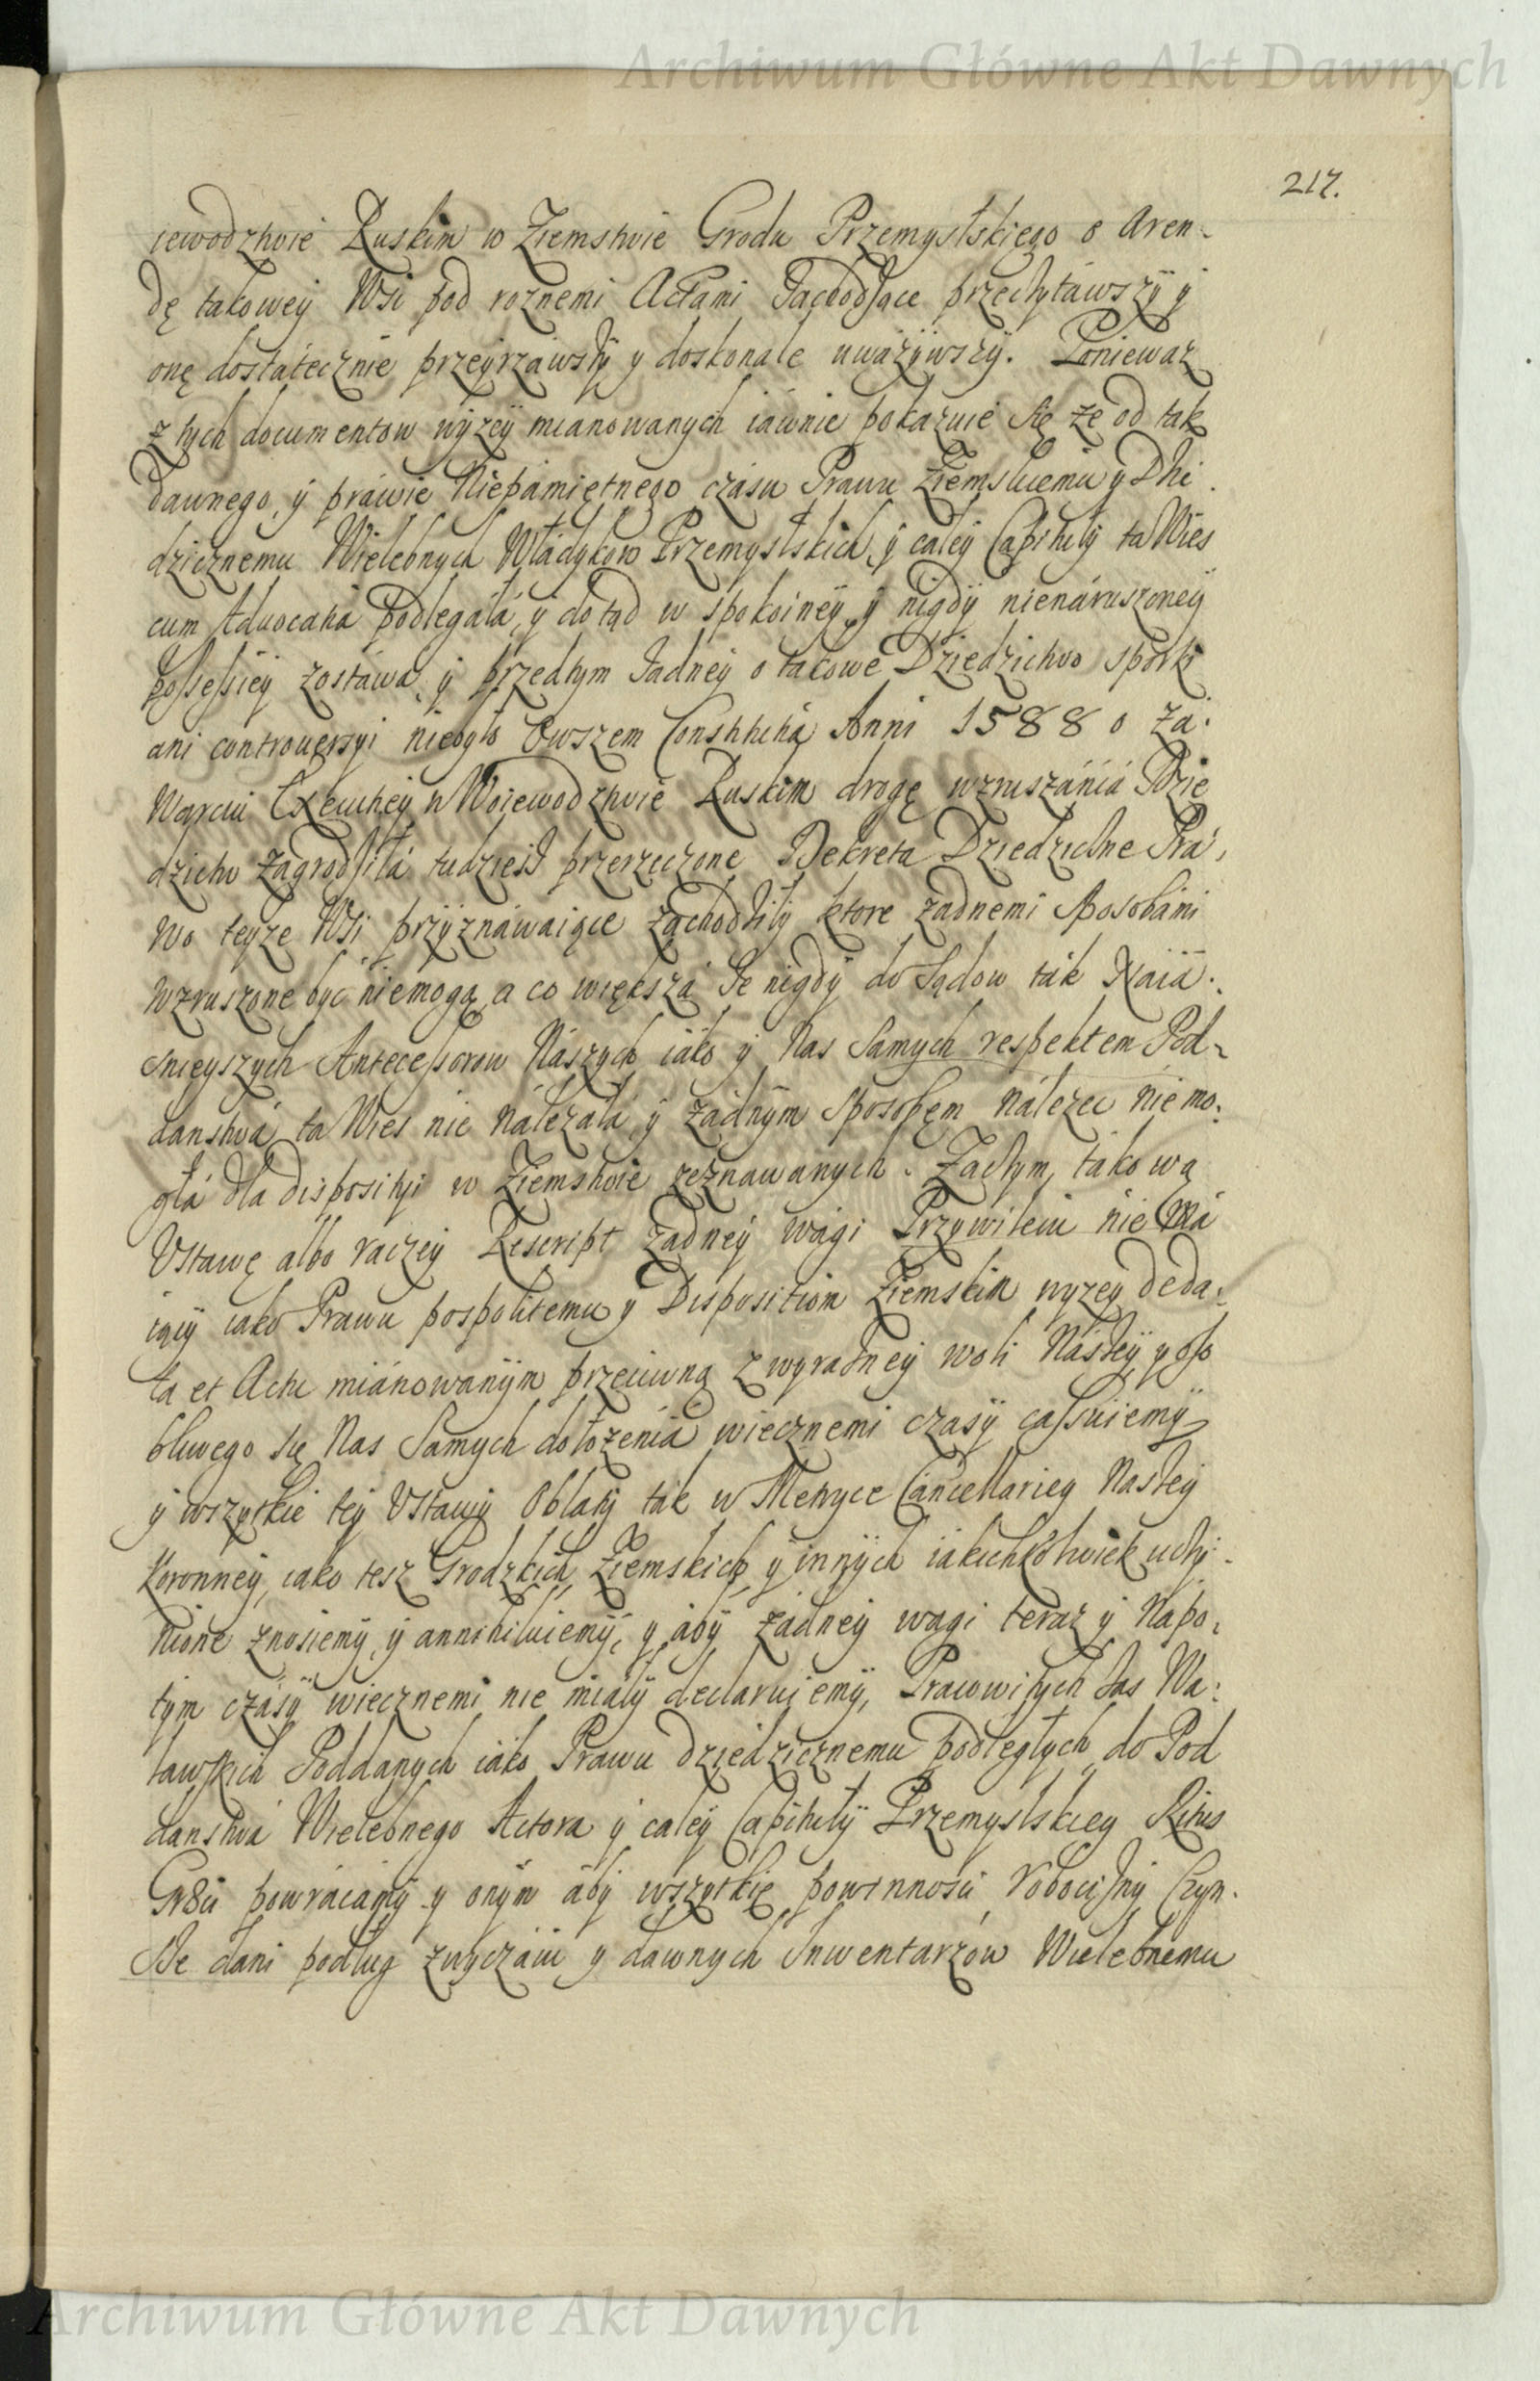 Archiwum Główne Akt Dawnych
217.
iewodztwie Ruskim w Ziemstwie Grodu Przemyslskiego o Aren-
dę takowey Wsi pod roznemi Actami Zachodzące przeczytawszy y
onę dostatecznie przeyrzawszy y doskonale uwazywszy. Poniewaz
z tych documentow wyzey mianowanych iawnie pokazuie się ze od tak
dawnego, y prawie Niepamiętnego czasu Prawu Ziemskiemu y Dzie
dzicznemu Wielebnych Władykow Przemyslskich, y całey Capituły ta Wies
cum Advocatia Podlegała, y do tąd w spokoiney, y nigdy nienaruszoney
possessiey zostawa, y przedtym Zadney o takowe Dziedzictwo sporki
ani controuersyi niebyło Owszem Constitutia Anni 1588 o Za:
Warciu Exekutiey w Woiewodztwie Ruskim drogę wzruszánia Dzie
dzictw Zagrodziła tudziesz przerzeczone Dekreta Dziedziczne Pra,
wo teyze Wsi przyznáwaiące zachodziły ktore zadnemi sposobami
wzruszone byc niemogą, a co większa Ze nigdy do Sądow tak Naia:
snieyszych Antecessorow Naszych iáko y Nas Samych respektem Pod-
danstwá ta Wies nie nalezała, y zadnym sposobęm nálezec nie mo:
głá dla dispositiji w Ziemstwie zeznawanych. Zaczym, takową
Ustawę albo raczey Rescript zadney wagi Przywileiu nie Ma
iący iako Prawu pospolitemu y Disposition Ziemskim wyzey de da:
ta et Actu miánowanym przeciwną z wyrazney woli Naszey y oso
bliwego się Nas Samych dołozenia wiecznemi czasy cassuiemy
y wszytkie tey Ustawy Oblaty tak w Metryce Cancellariey Naszey
Koronney, iako tesz Grodzkich Ziemskich y innych iakichkolwiek uczy-
nione znosiemy, y annihiluiemy, y aby zadney wagi teraz y Napo,
tym czasy wiecznemi nie miały declaruiemy, Prawowitych zas Wa:
lawskich Poddanych iáko Prawu dziedzicznemu podległych do Pod
danstwa Wielebnego Actora y całey Capituły Przemyslskiey Ritus
Græci powracamy y onym aby wszytkie powinnosci, Robocizny Czyn-
sze dani podług zwyczaiu y dawnych Inwentarzów Wielebnemu
Archiwum Główne Akt Dawnych